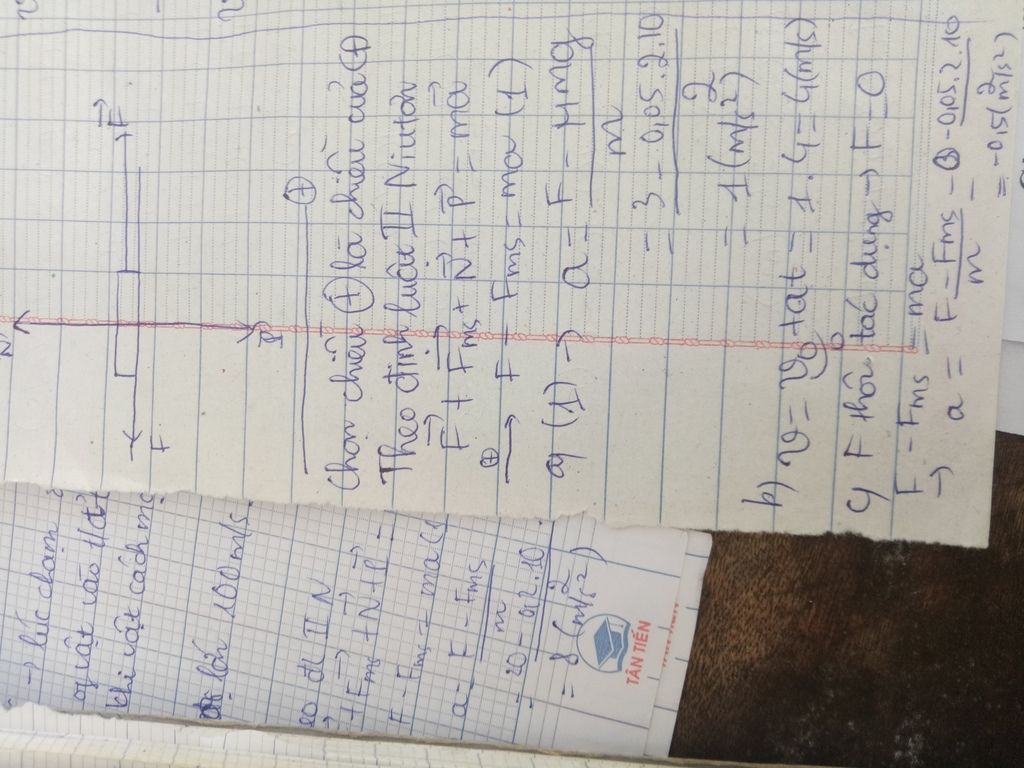 N
F
F
P
+
Chọn chiều (+) là chiều của (+)
Theo định luật II Niutơn
F + Fms + N + P = ma
(+) → F - Fms = ma (1)
a) (1) → a = F - μmg
m
= 3 - 0,05.2.10
= 1 (m/s²)
b) v = v0 + at = 1.4 = 4 (m/s)
0
c) F thôi tác dụng → F = 0
F - Fms = ma
→ a = F - Fms = 0 - 0,05.2.10
m
= -0,5 (m/s²)
→ lúc chạm
khi vật cách
lớn 100m/s
đl II N
+ Fms + N + P =
F - Fms = ma (1
a = F - Fms
m
= 20 - 0,2.10
= 8 (m/s²)
TÂN TIẾN